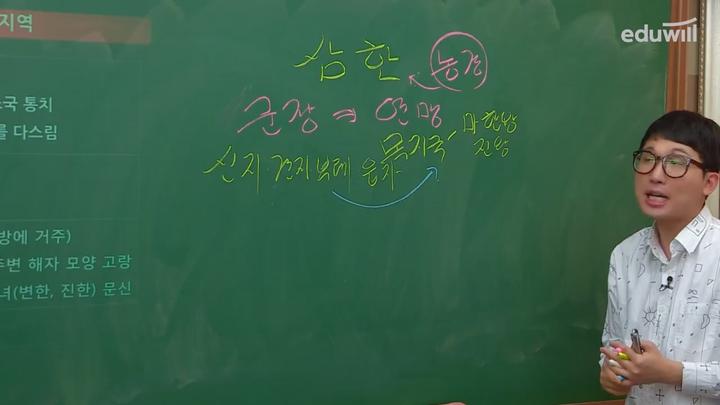 지역
조국 통치
를 다스림
방에 거주)
주변 해자 모양 고랑
녀(변한, 진한) 문신
삼한
농경
군장 → 연맹
목지국 마한왕
진왕
신지 견지 부례 읍차
eduwill